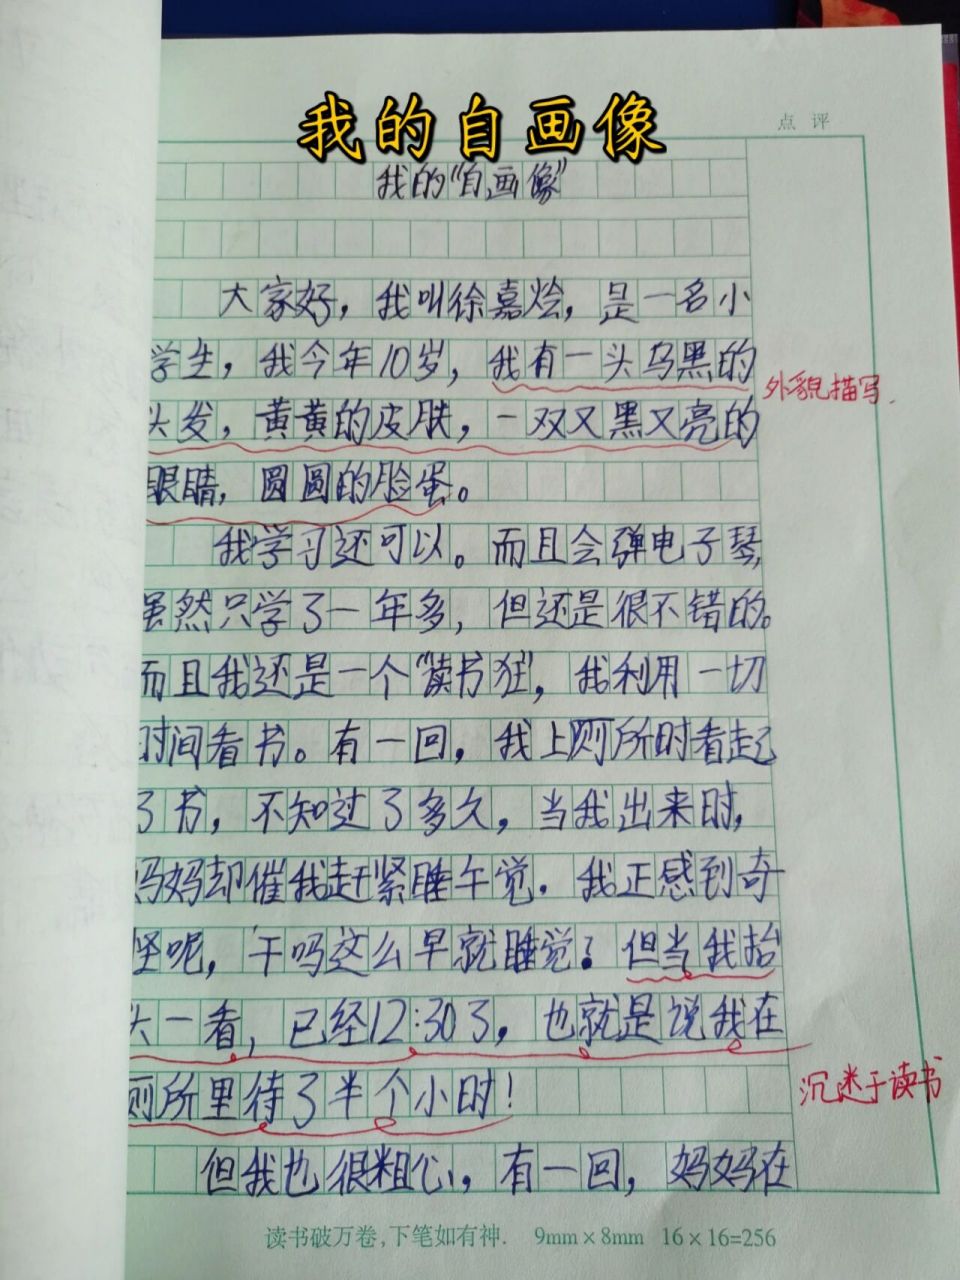 我的自画像
点评
我的“自画像”
大家好，我叫徐嘉烩，是一名小
学生，我今年10岁，我有一头乌黑的
外貌描写
头发，黄黄的皮肤，一双又黑又亮的
眼睛，圆圆的脸蛋。
我学习还可以。而且会弹电子琴，
虽然只学了一年多，但还是很不错的。
而且我还是一个“读书狂”，我利用一切
时间看书。有一回，我上厕所时看起
了书，不知过了多久，当我出来时，
妈妈却催我赶紧睡午觉。我正感到奇
怪呢，干吗这么早就睡觉？但当我抬
头一看，已经12:30了，也就是说我在
厕所里待了半个小时！
沉迷于读书
但我也很粗心，有一回，妈妈在
读书破万卷,下笔如有神. 9mm×8mm 16×16=256